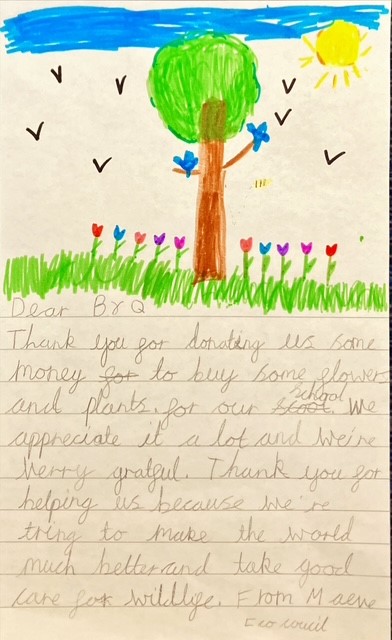 Dear B&Q
Thank you for donating us some
money for to buy some flowers
and plants. for our scool school. We
appreciate it a lot and we're
verry gratful. Thank you for
helping us because we're
tring to make the world
much better and take good
care for wildlife. From Maeve
Eco council